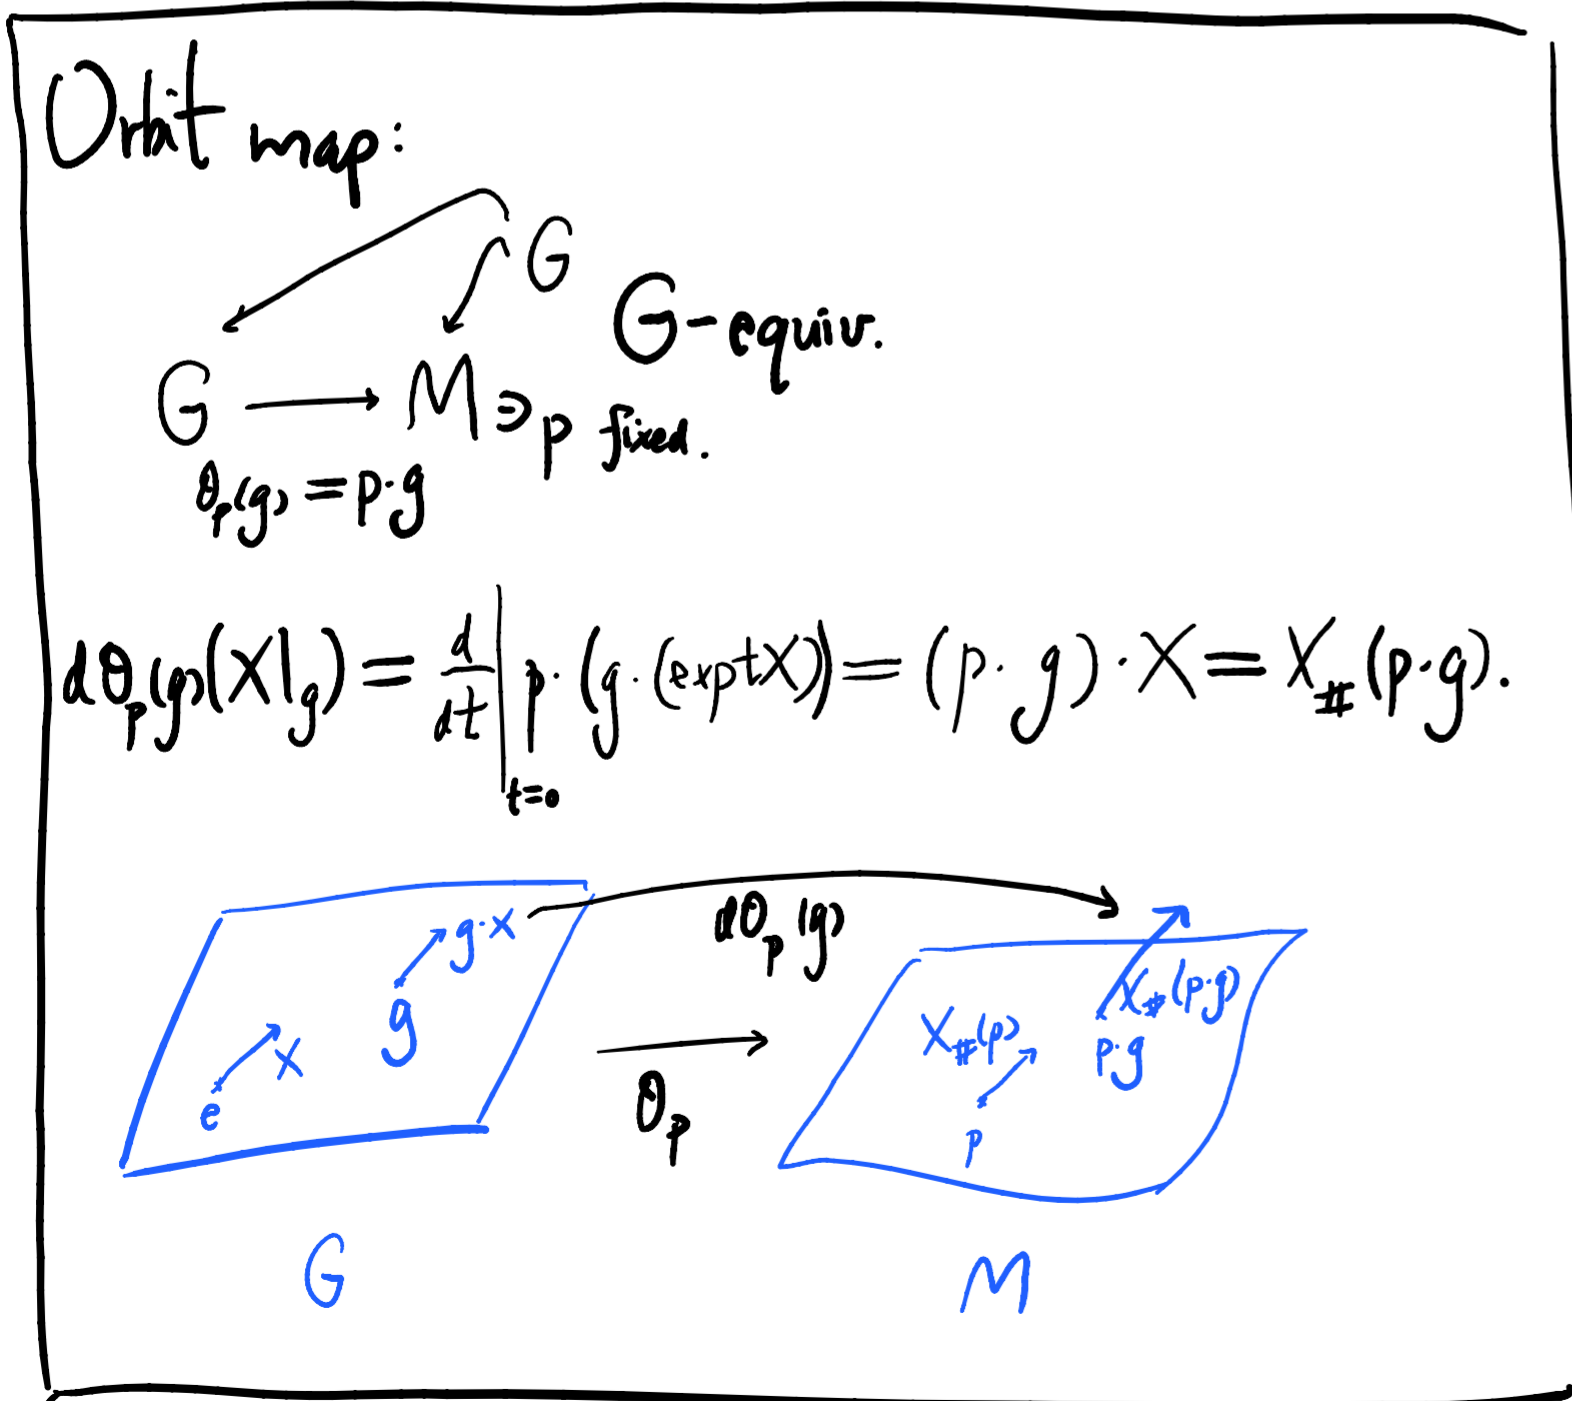 Orbit map:
G
G-equiv.
G → M ∋ p fixed.
θ_p(g) = p·g
dθ_p(g)(X|_g) = d/dt|_{t=0} p·(g·(exp tX)) = (p·g)·X = X_#(p·g).
dθ_p(g)
g·X
g
X
e
θ_p
X_#(p·g)
X_#(p)
p·g
p
G
M